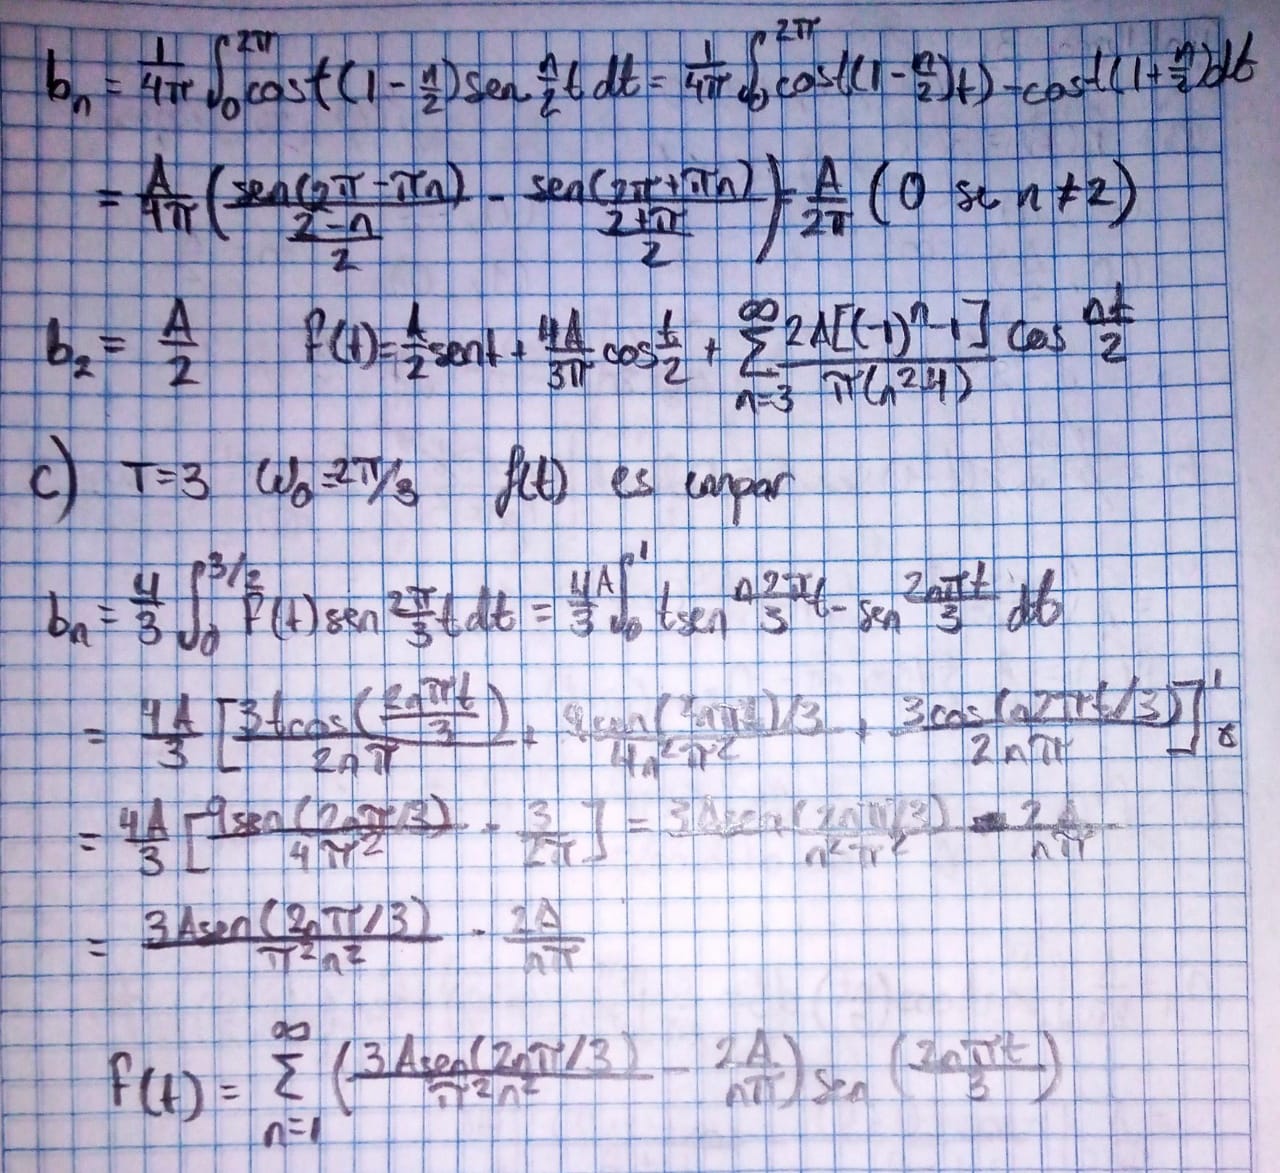 bₙ = 1/4π ∫₀^2π cost(1 - n/2) sen n/2 t dt = 1/4π ∫₀^2π cost((1 - n/2)t) - cost(1 + n/2) dt
= A/4π (sen(2π - πn)/((2-n)/2) - sen(2π + πn)/((2+π)/2)) - A/2π (0 se n ≠ 2)
b₂ = A/2 f(t) = A/2 sent + 4A/3π cos t/2 + ∑_{n=3}^∞ 2A[(-1)ⁿ-1]/π(n²4) cos nt/2
c) T=3 ω₀=2π/3 f(t) es
bₙ = 4/3 ∫₀^3/2 f(t) sen 2π/3 t dt = 4A/3 ∫₀^1 t sen n2π/3 t - sen 2nπt/3 dt
= 4A/3 [3tcos(2nπt/3)/2nπ + 9sen(2nπt)/3/4n²π² + 3cos(n2πt/3)/2nπ]₀^1
= 4A/3 [9sen(2nπ/3)/4π² - 3/2π] = 3Asen(2nπ/3)/n²π² - 2A/nπ
= 3Asen(2nπ/3)/π²n² - 2A/nπ
f(t) = ∑_{n=1}^∞ (3Asen(2nπ/3)/π²n² - 2A/nπ) sen (2nπt/3)